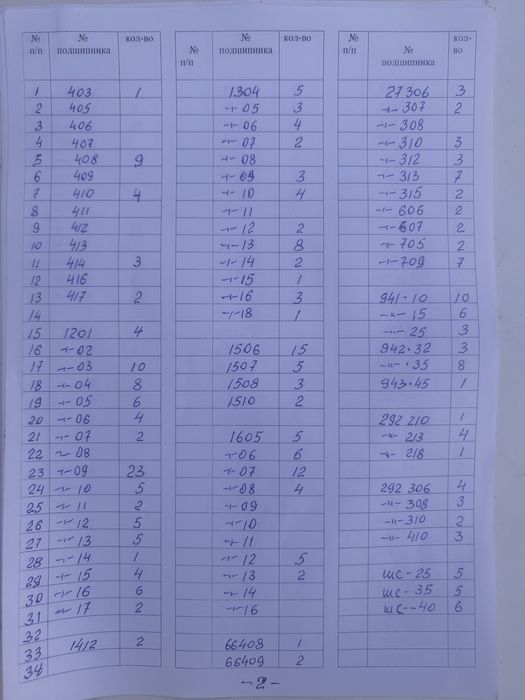 № п/п № подшипника кол-во
1 403 1
2 405
3 406
4 407
5 408 9
6 409
7 410 4
8 411
9 412
10 413
11 414 3
12 416
13 417 2
14
15 1201 4
16 -"- 02
17 -"- 03 10
18 -"- 04 8
19 -"- 05 6
20 -"- 06 4
21 -"- 07 2
22 -"- 08
23 -"- 09 23
24 -"- 10 5
25 -"- 11 2
26 -"- 12 5
27 -"- 13 5
28 -"- 14 1
29 -"- 15 4
30 -"- 16 6
31 -"- 17 2
32
33 1412 2
34
№ п/п № подшипника кол-во
1304 5
-"- 05 3
-"- 06 4
-"- 07 2
-"- 08
-"- 09 3
-"- 10 4
-"- 11
-"- 12 2
-"- 13 8
-"- 14 2
-"- 15 1
-"- 16 3
-"- 18 1
1506 15
1507 5
1508 3
1510 2
1605 5
-"- 06 6
-"- 07 12
-"- 08 4
-"- 09
-"- 10
-"- 11
-"- 12 5
-"- 13 2
-"- 14
-"- 16
66408 1
66409 2
№ п/п № подшипника кол-во
27306 3
-"- 307 2
-"- 308
-"- 310 3
-"- 312 3
-"- 313 7
-"- 315 2
-"- 606 2
-"- 607 2
-"- 705 2
-"- 709 7
941-10 10
-"- 15 6
-"- 25 3
942·32 3
-"- ·35 8
943·45 1
292 210 1
-"- 213 4
-"- 218 1
292 306 4
-"- 308 3
-"- 310 2
-"- 410 3
ШС-25 5
ШС-35 5
ШС-40 6
-2-